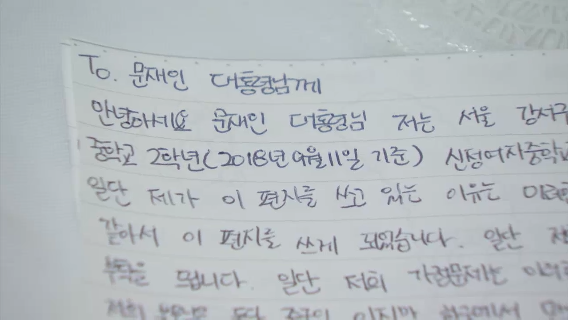 To. 문재인 대통령님께
안녕하세요 문재인 대통령님 저는 서울 강서구
중학교 2학년(2018년 9월 11일 기준) 신정여자중학교
일단 제가 이 편지를 쓰고 있는 이유는
같아서 이 편지를 쓰게 되었습니다. 일단
부탁을 드립니다. 일단 저희 가정문제는
저희